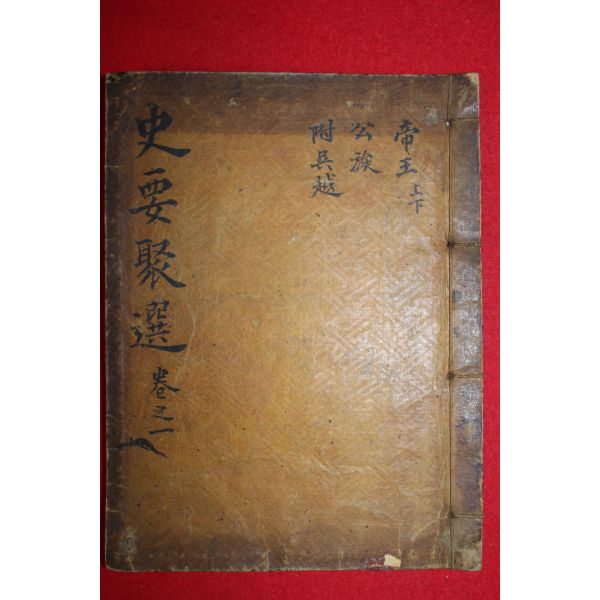 帝王上下
公族
附吳越
史要聚選 卷之一